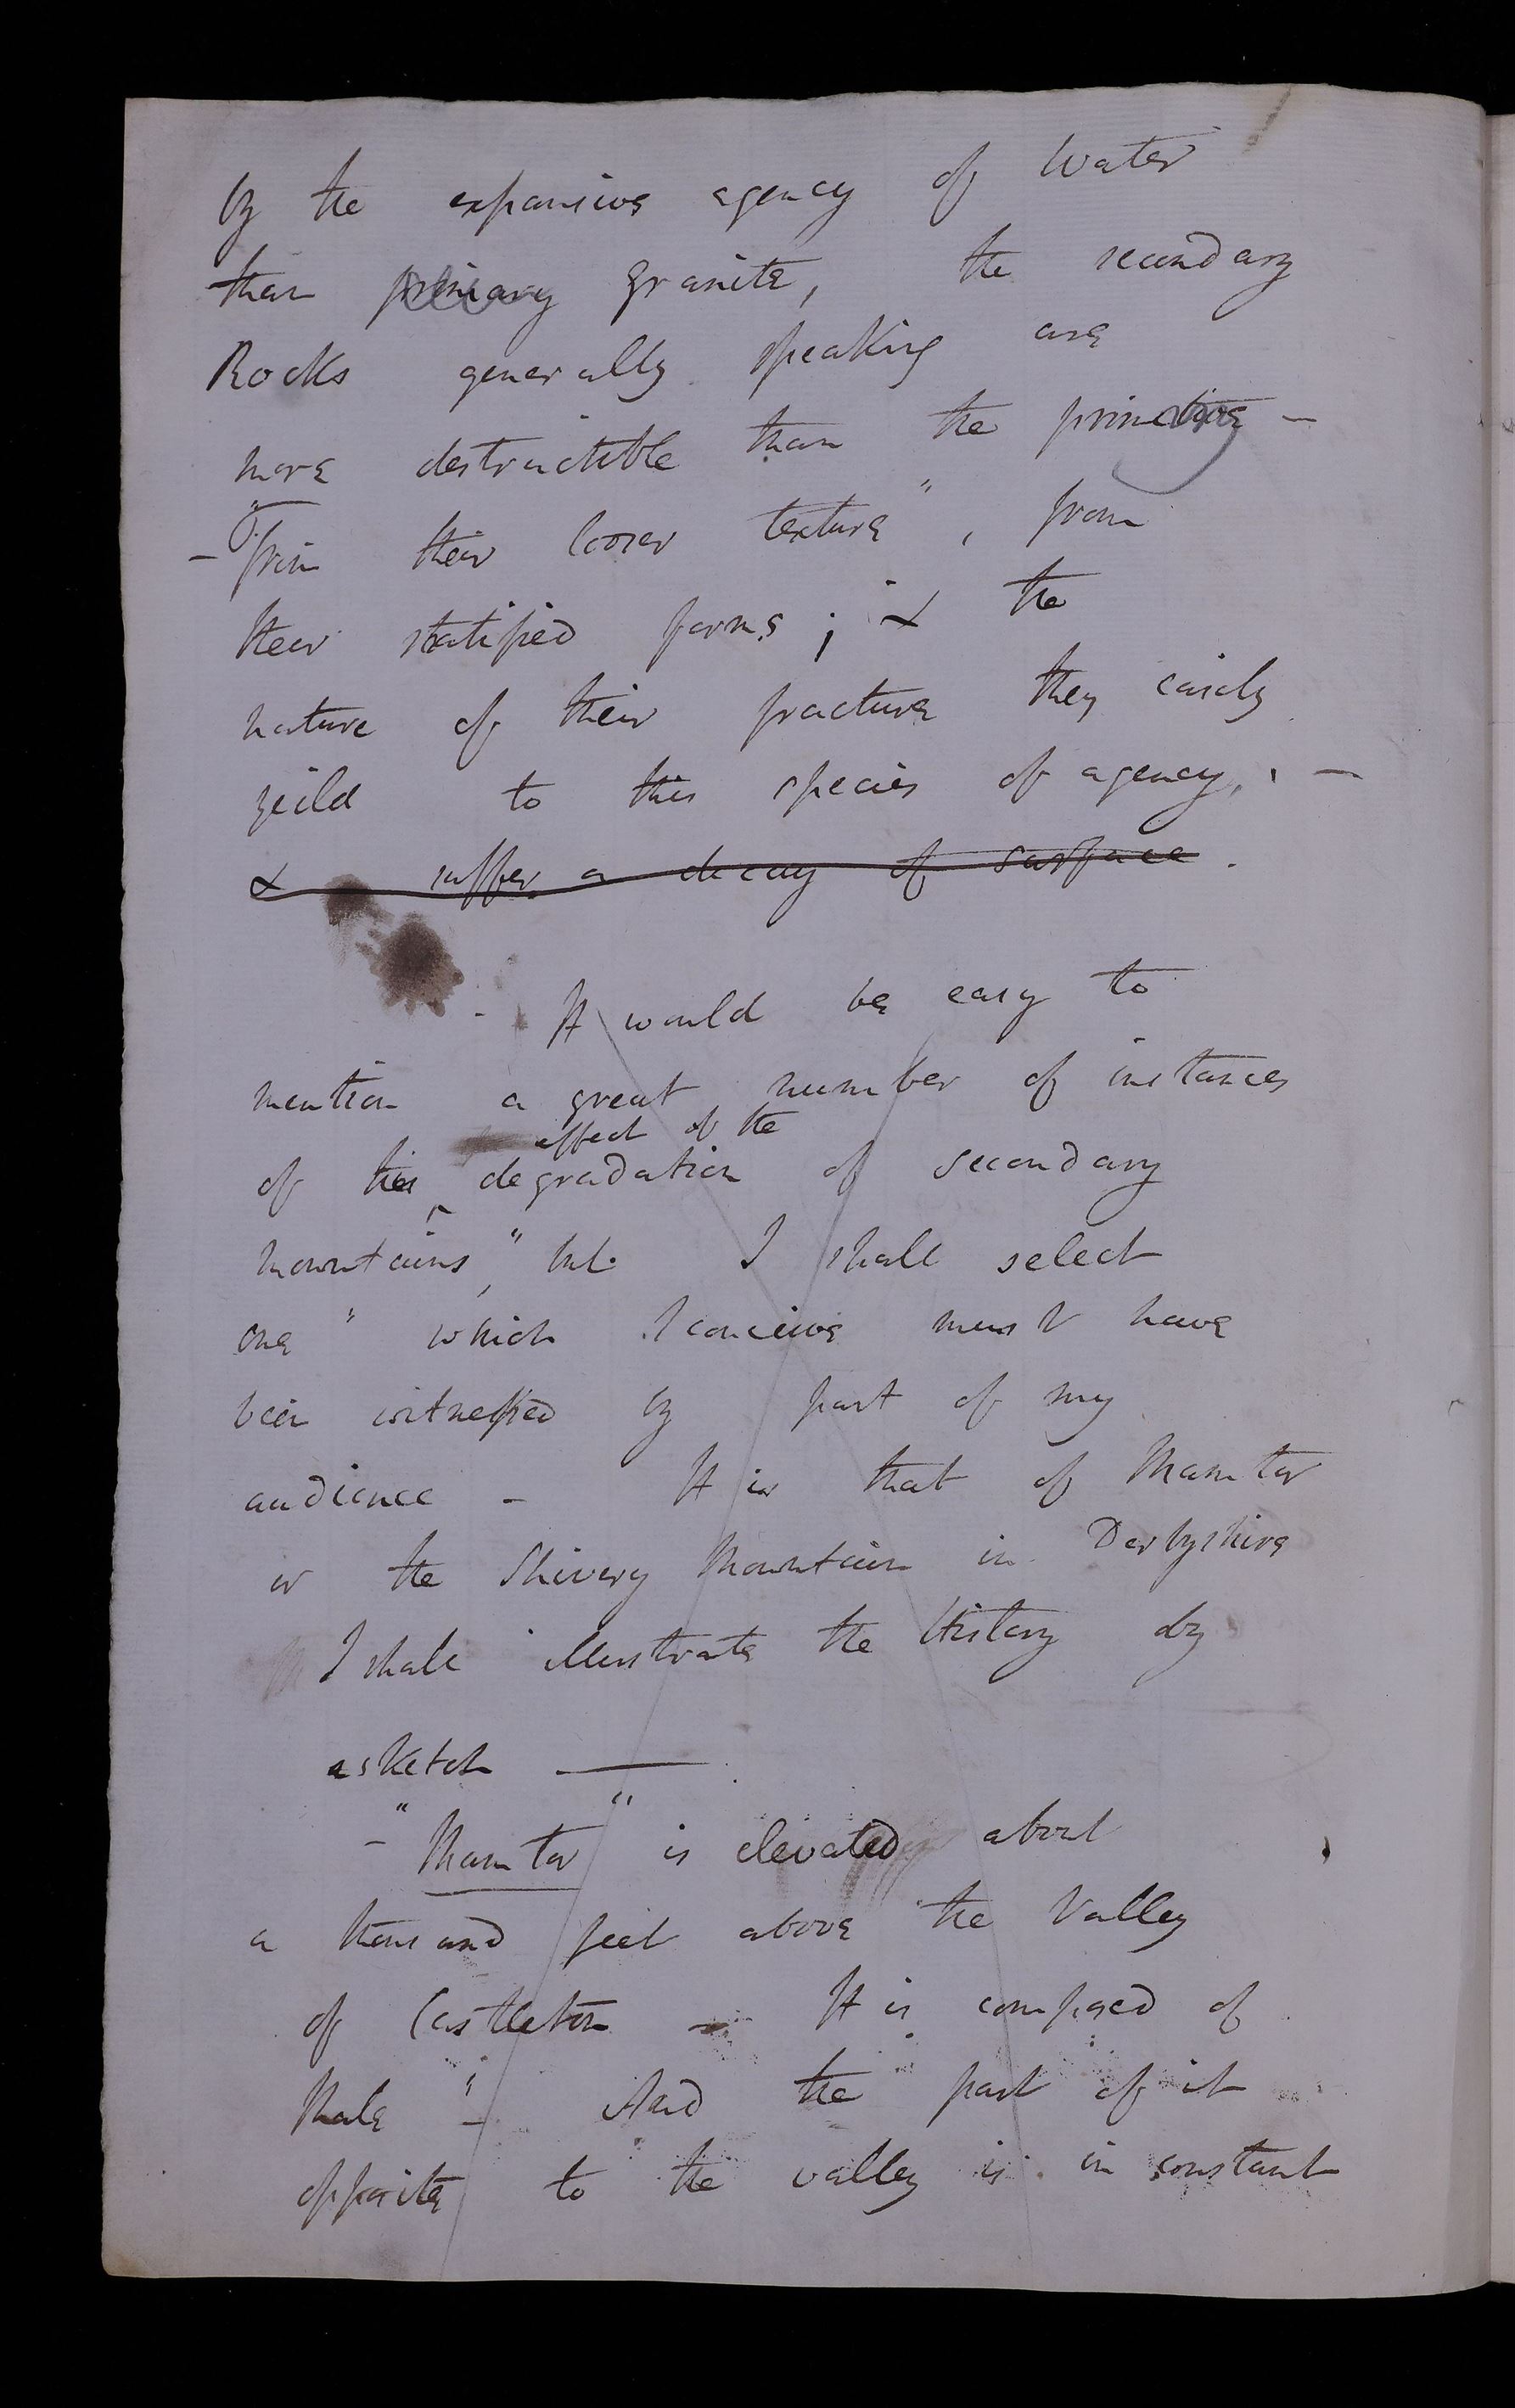 by the expansive agency of Water
than primary granite, the secondary
Rocks generally speaking are
more destructible than the primitive –
– "From their looser texture", from
their statified forms; & the
nature of their fracture they easily
yeild to this species of agency. –
& suffer a decay of surface.
- It would be easy to
mention a great number of instances
effect of the
of this degradation of secondary
mountains," but I shall select
one " which I conceive must have
been witnessed by part of my
audience – It is that of Mam tor
or the Shivery Mountain in Derbyshire
I shall illustrate the History by
a sketch —
– "Mam tor" is elevated about
a thousand feet above the Valley
of Castleton – It is composed of
shale " – And the part of it
opposite to the valley is in constant